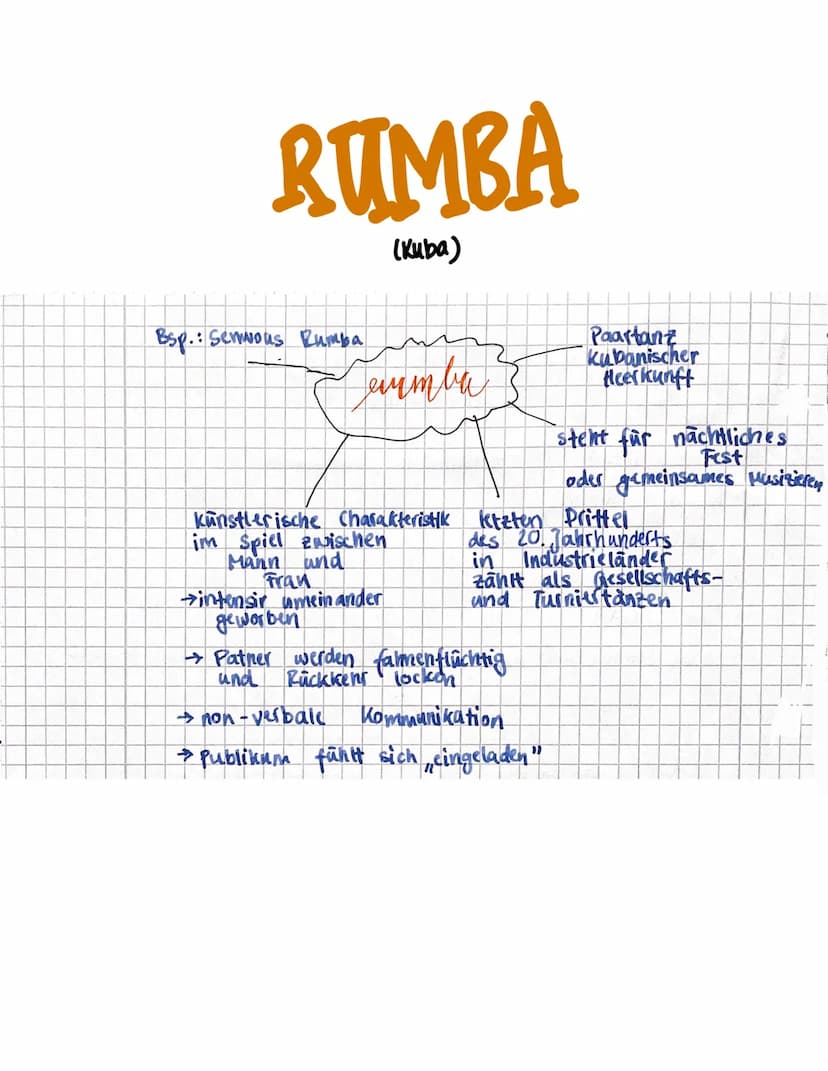 RUMBA
(Kuba)
Bsp.: Sennous Rumba
rumba
Paartanz
kubanischer
Heerkunft
steht für nächtliches
Fest
oder gemeinsames Musizieren
künstlerische Charakteristik
im Spiel zwischen
Mann und
Frau
→intensiv umeinander
geworben
→ Patner werden fahnenflüchtig
und Rückkehr locken
→ non-verbale Kommunikation
→ Publikum fühlt sich „eingeladen"
letzten Drittel
des 20. Jahrhunderts
in Industrieländer
zählt als Gesellschafts-
und Turniertänzen